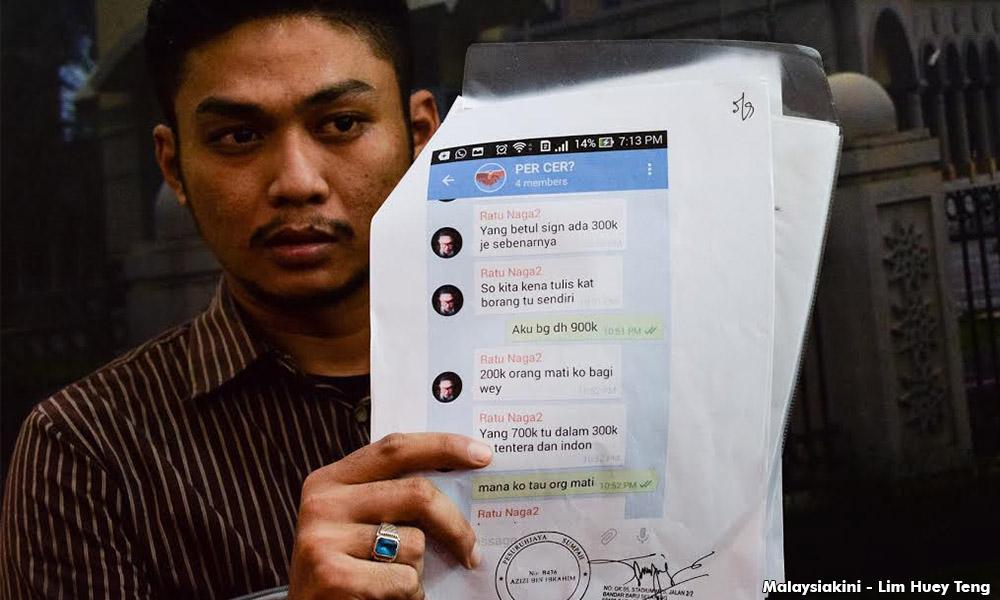 5/9
14% 7:13 PM
PER CER?
4 members
Ratu Naga2
Yang betul sign ada 300k
je sebenarnya
Ratu Naga2
So kita kena tulis kat
borang tu sendiri
Aku bg dh 900k 10:51 PM
Ratu Naga2
200k orang mati ko bagi
wey
10:52 PM
Ratu Naga2
Yang 700k tu dalam 300k
tentera dan indon
10:52 PM
mana ko tau org mati 10:52 PM
Ratu Naga2
PESURUHJAYA SUMPAH
No: B436
AZIZI BIN IBRAHIM
JALAN 2/2
Malaysiakini - Lim Huey Teng